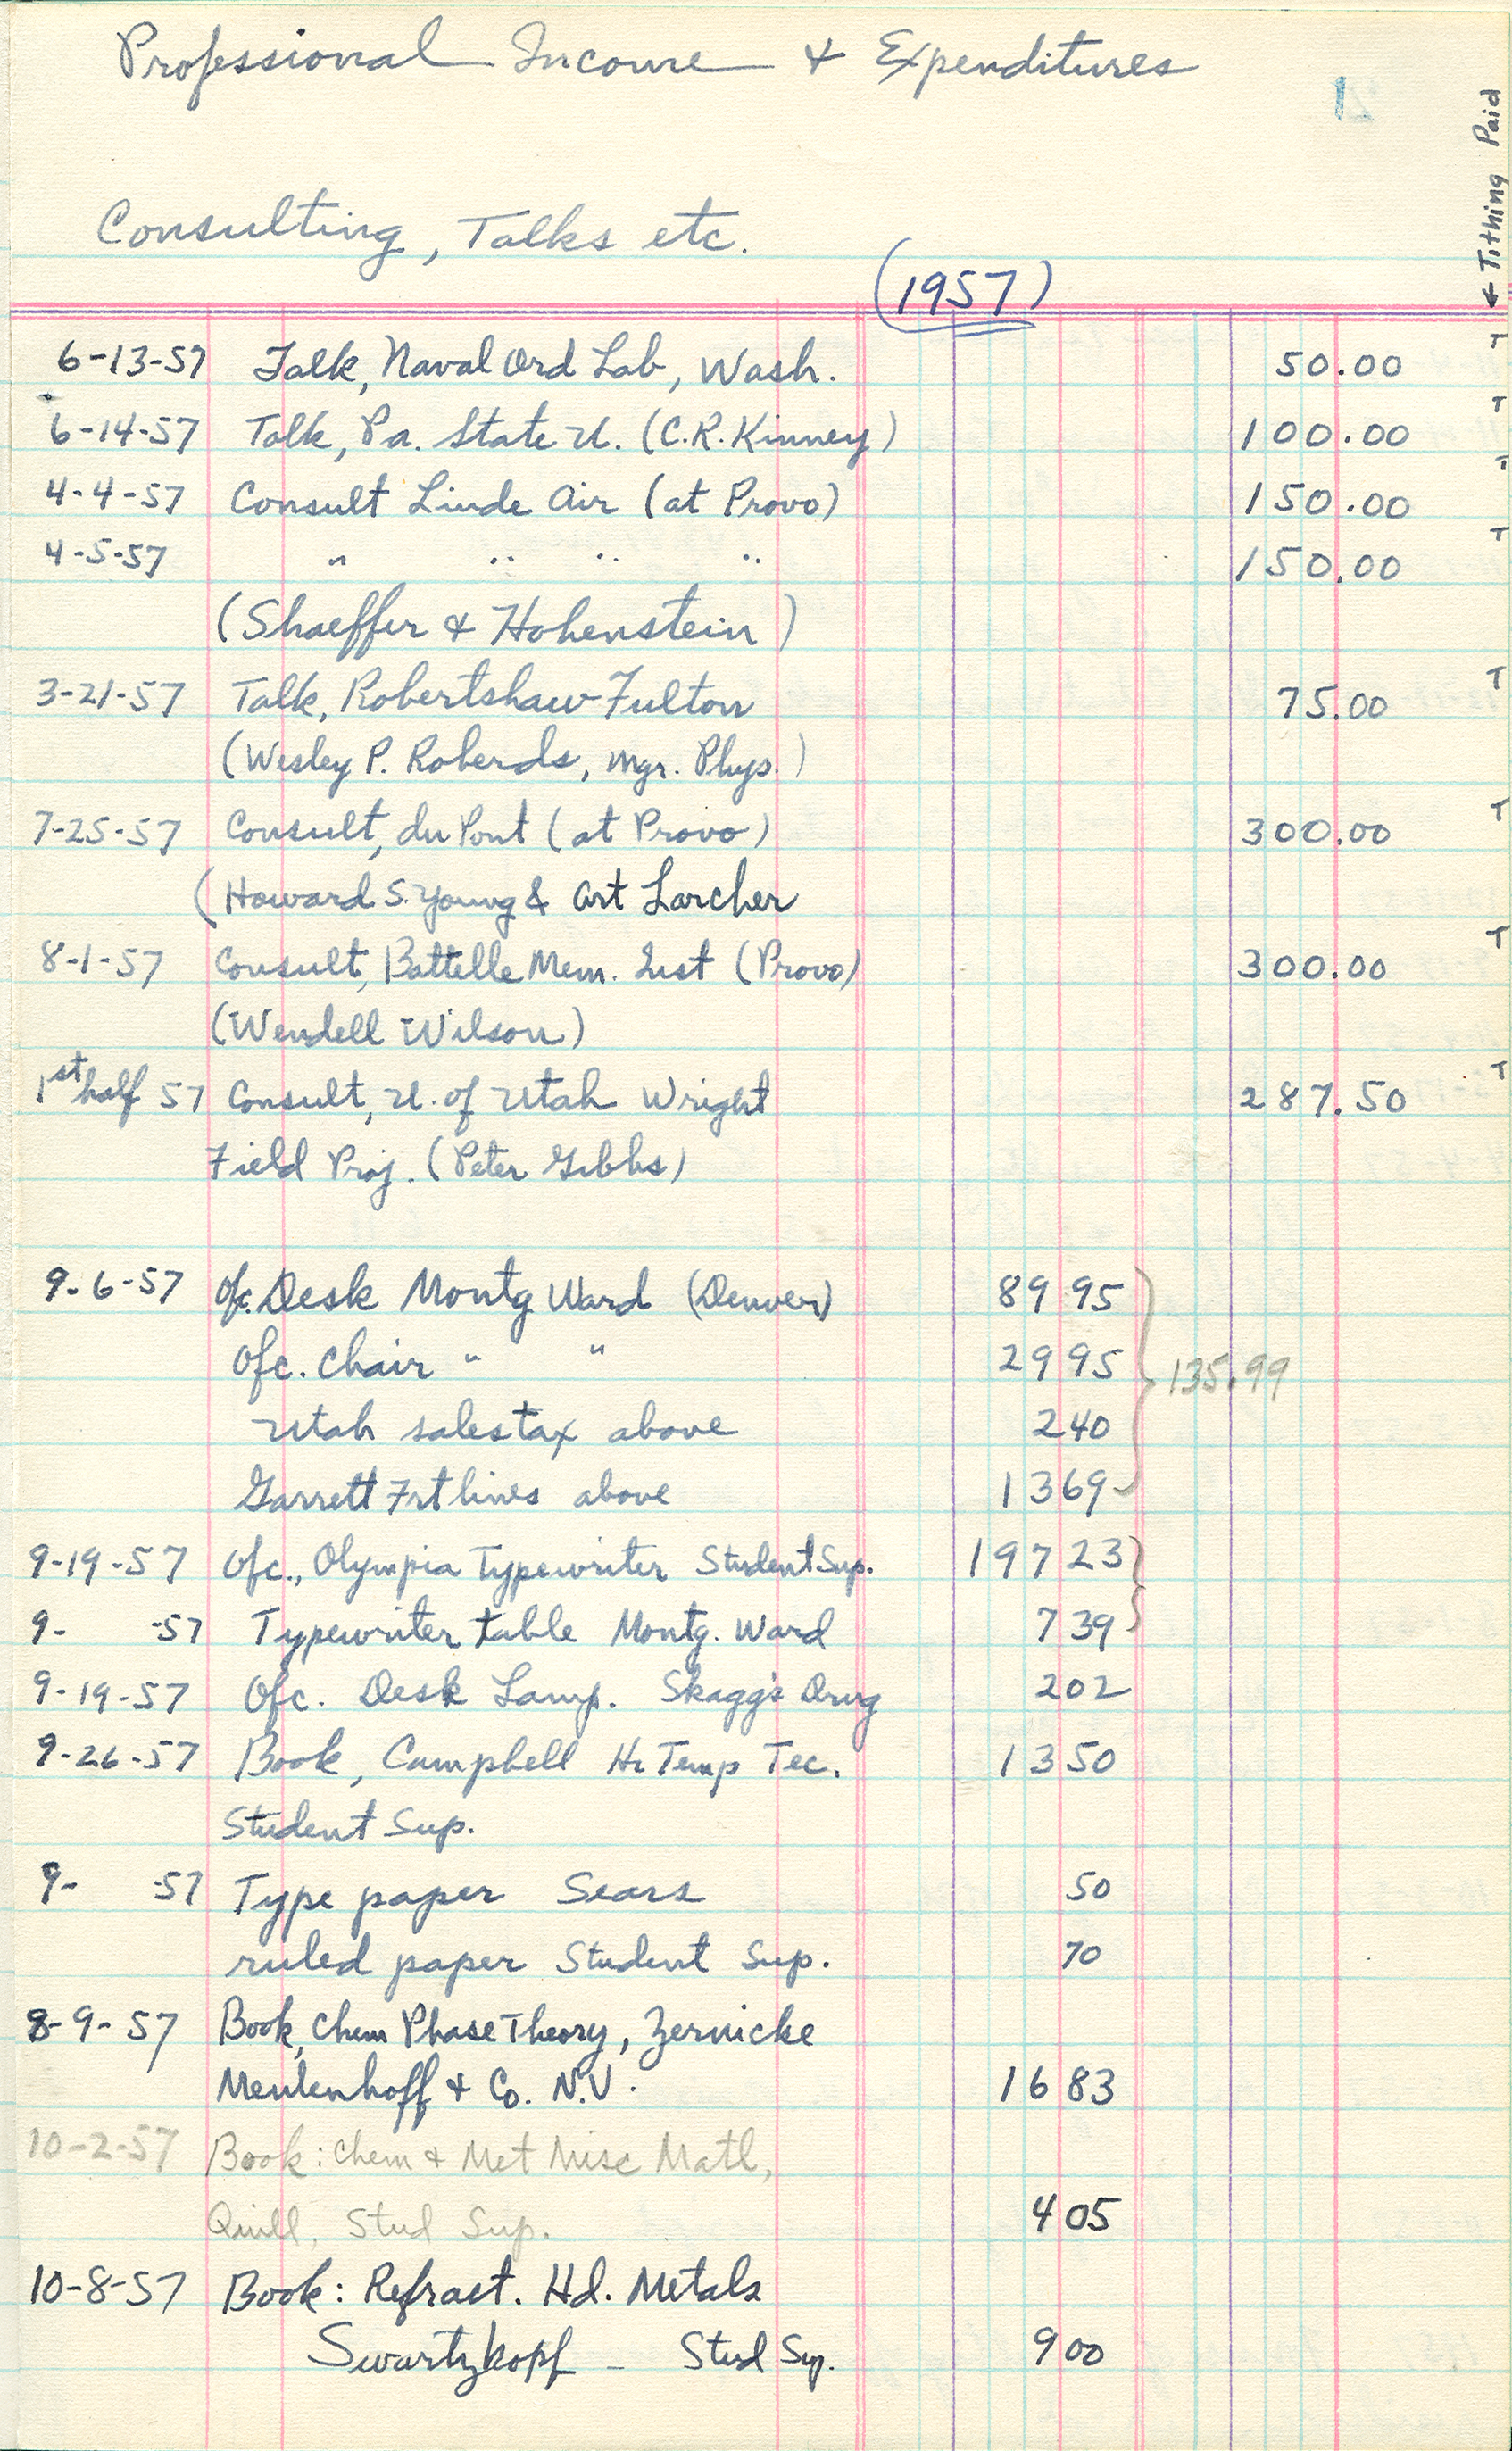 Professional Income & Expenditures
1
← Tithing Paid
Consulting, Talks etc.
(1957)
6-13-57 Talk, Naval Ord Lab, Wash. 50.00 T
6-14-57 Talk, Pa. State U. (C.R. Kinney) 100.00 T
4-4-57 Consult Linde Air (at Provo) 150.00 T
4-5-57 " " " " 150.00 T
(Shaeffer & Hohenstein)
3-21-57 Talk, Robertshaw-Fulton 75.00 T
(Wesley P. Roberds, Mgr. Phys.)
7-25-57 Consult, du Pont (at Provo) 300.00 T
(Howard S. Young & Art Larcher
8-1-57 Consult, Battelle Mem. Inst (Provo) 300.00 T
(Wendell Wilson)
1st half 57 Consult, U. of Utah Wright 287.50 T
Field Proj. (Peter Gibbs)
9-6-57 Ofc. Desk Montg Ward (Denver) 89 95
Ofc. Chair " " 29 95 135.99
Utah sales tax above 2 40
Garrett Frt lines above 13 69
9-19-57 Ofc., Olympia Typewriter Student Sup. 197 23
9- -57 Typewriter table Montg. Ward 7 39
9-19-57 Ofc. Desk Lamp. Skagg's Drug 2 02
9-26-57 Book, Campbell Hi Temp Tec. 13 50
Student Sup.
9- -57 Type paper Sears 50
ruled paper Student Sup. 70
8-9-57 Book, Chem Phase Theory, Zernicke
Meulenhoff & Co. N.V. 16 83
10-2-57 Book: Chem & Met Misc Matl,
Quill, Stud Sup. 4 05
10-8-57 Book: Refract. Hd. Metals
Swartzkopf - Stud Sup. 9 00